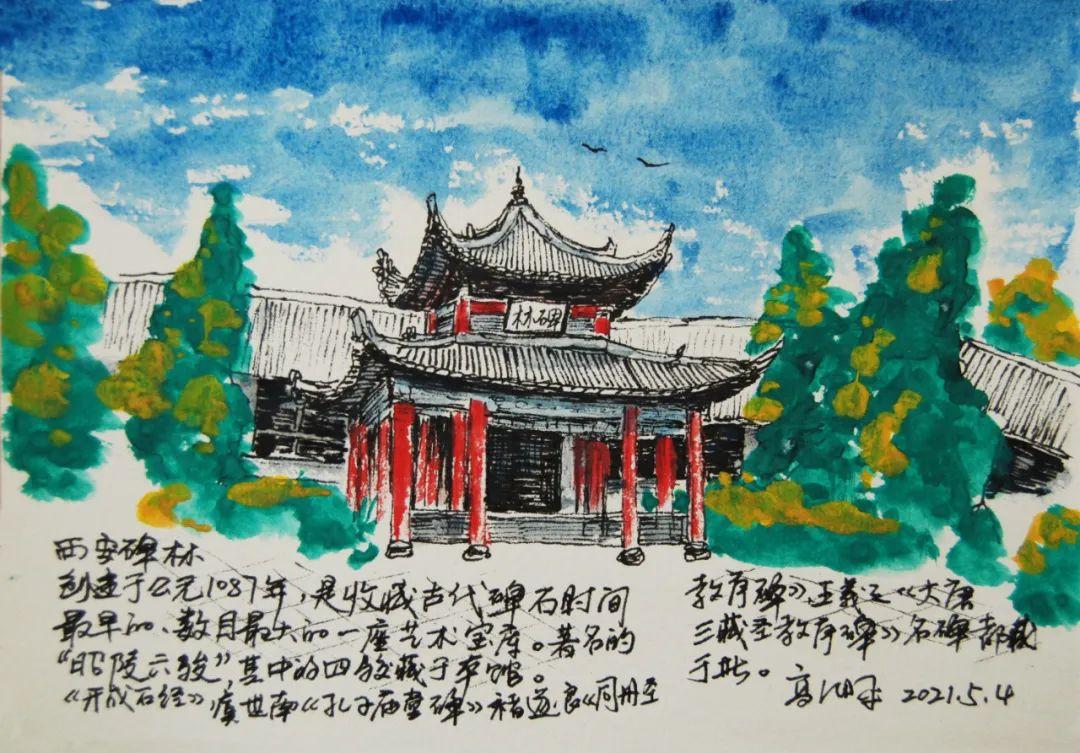 碑林
西安碑林
创建于公元1087年，是收藏古代碑石时间
最早的、数目最大的一座艺术宝库。著名的
“昭陵六骏”，其中的四骏藏于本馆。
《开成石经》，虞世南《孔子庙堂碑》褚遂良《同州圣
教序碑》，王羲之《大唐
三藏圣教序碑》名碑都藏
于此。
高 2021.5.4